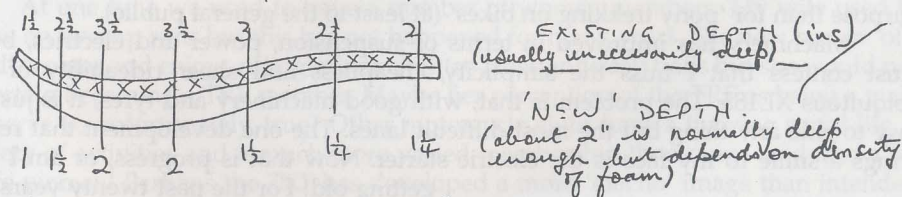 1½ 2½ 3½ 3½ 3 2½ 2¼
EXISTING DEPTH (ins)
(usually unnecessarily deep)
'NEW' DEPTH
(about 2" is normally deep
enough, but depends on density
of foam)
1½ 2 2 1½ 1¼ 1¼